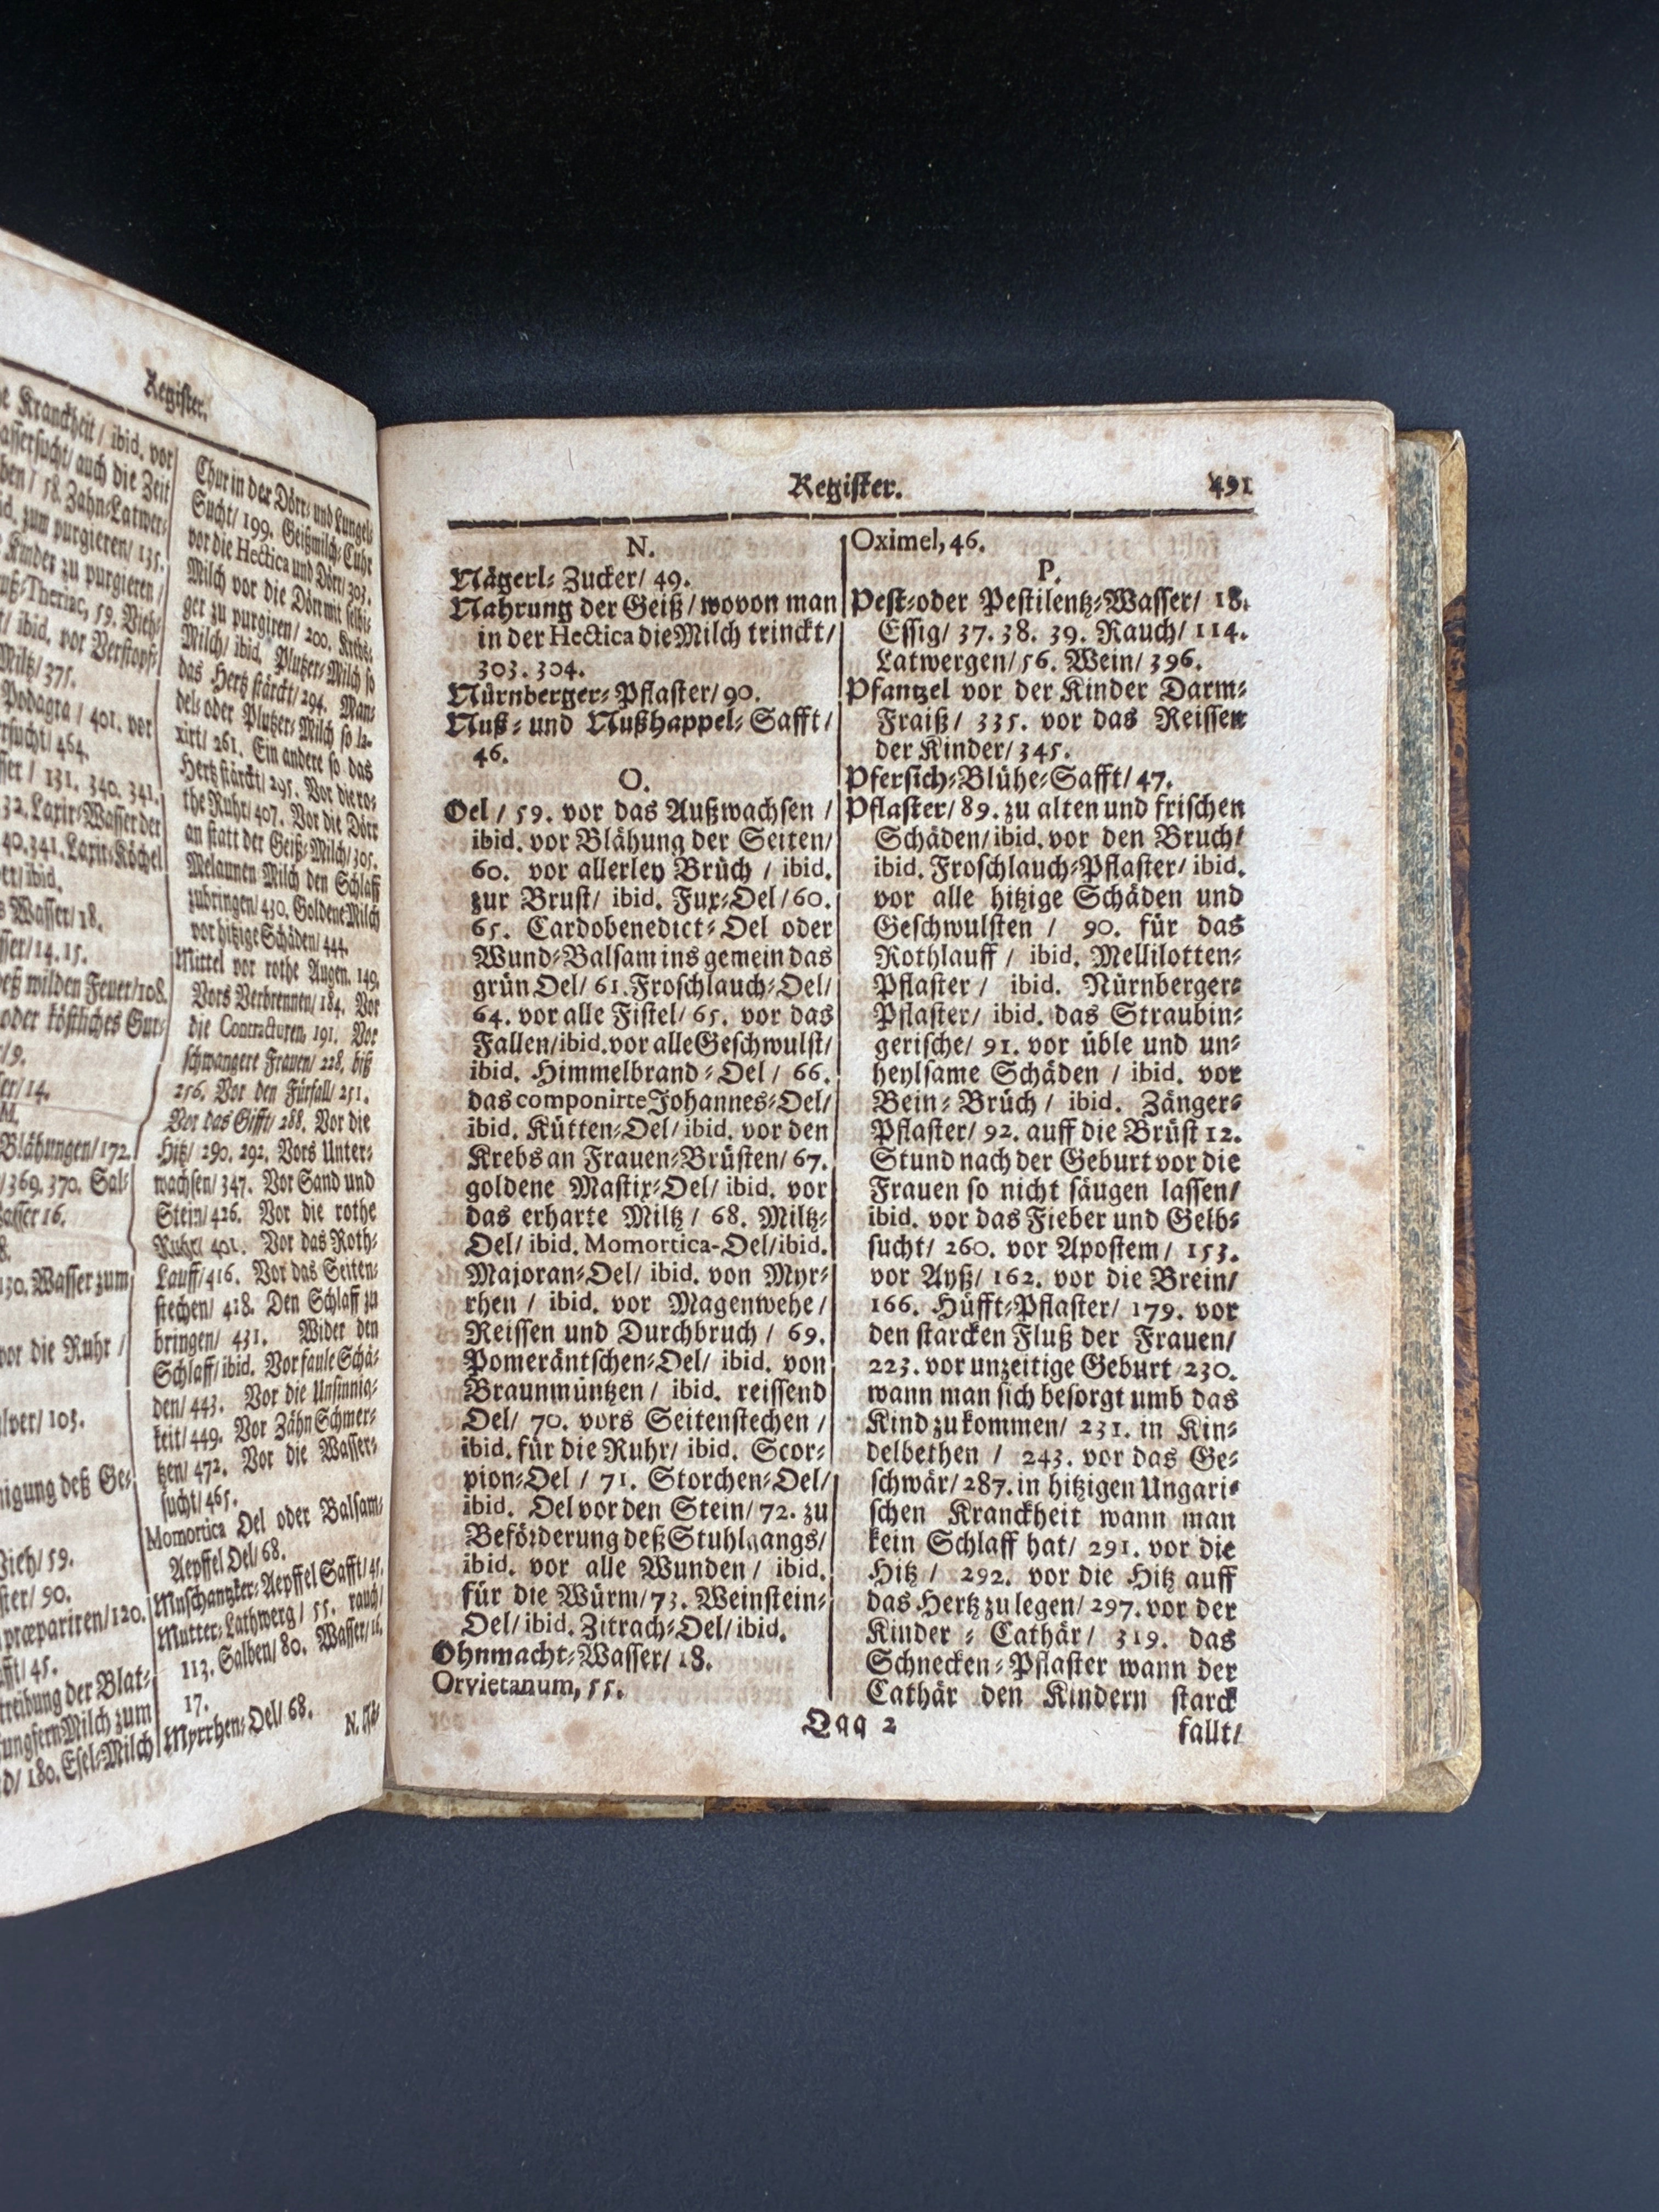 Register.
Kranckheit / ibid. vor
wassersucht / auch die Zeit
58. Zahn-Latwer-
zum purgieren / 135.
Kinder zu purgieren /
Theriac, 59. Vieh-
ibid. vor Verstopf-
Miltz / 375.
Podagra / 401. vor
464.
131. 340. 341.
32. Laxir-Wasser der
40. 341. Laxir-Köchel
ibid.
Wasser / 18.
14. 15.
deß wilden Feuer / 108.
oder köstliches Gur-
9.
14.
M.
Blähungen / 172.
369. 370. Sal-
Wasser 16.
130. Wasser zum
vor die Ruhr /
103.
deß Ge-
Vieh / 59.
90.
præpariren / 120.
45.
treibung der Blat-
Milch zum
180. Esel-Milch
Chur in der Dörr- und Lungel-
Sucht / 199. Geißmilch-Cuhr
vor die Hectica und Dörr / 303.
Milch vor die Dörr mit selbi-
ger zu purgiren / 200. Krebs-
Milch / ibid. Plutzer-Milch so
das Hertz stärckt / 294. Man-
del- oder Plutzer-Milch so la-
xirt / 261. Ein andere so das
Hertz stärckt / 295. Vor die ro-
the Ruhr / 407. Vor die Dörr
an statt der Geiß-Milch / 305.
Melaunen Milch den Schlaff
zubringen / 430. Goldene Milch
vor hitzige Schäden / 444.
Mittel vor rothe Augen. 149.
Vors Verbrennen / 184. Vor
die Contracturen, 191. Vor
schwangere Frauen / 228. biß
256. Vor den Fürfall / 251.
Vor das Gifft / 288. Vor die
Hitz / 290. 292. Vors Unter-
wachsen / 347. Vor Sand und
Stein / 426. Vor die rothe
Ruhr / 401. Vor das Roth-
Lauff / 416. Vor das Seiten-
stechen / 418. Den Schlaff zu
bringen / 431. Wider den
Schlaff / ibid. Vor faule Schä-
den / 443. Vor die Unsinnig-
keit / 449. Vor Zähn Schmer-
tzen / 472. Vor die Wasser-
sucht / 465.
Momortica Oel oder Balsam-
Aepffel Oel / 68.
Muschantzker-Aepffel Safft / 45.
Mutter-Lathwerg / 55. rauch /
113. Salben / 80. Wasser / 16.
17.
Myrrhen-Oel / 68.
Register. 491
N.
Nägerl-Zucker / 49.
Nahrung der Geiß / wovon man
in der Hectica die Milch trinckt /
303. 304.
Nürnberger-Pflaster / 90.
Nuß- und Nußhappel-Safft /
46.
O.
Oel / 59. vor das Außwachsen /
ibid. vor Blähung der Seiten /
60. vor allerley Brüch / ibid.
zur Brust / ibid. Fux-Oel / 60.
65. Cardobenedict-Oel oder
Wund-Balsam ins gemein das
grün Oel / 61. Froschlauch-Oel /
64. vor alle Fistel / 65. vor das
Fallen / ibid. vor alle Geschwulst /
ibid. Himmelbrand-Oel / 66.
das componirte Johannes-Oel /
ibid. Kütten-Oel / ibid. vor den
Krebs an Frauen-Brüsten / 67.
goldene Mastix-Oel / ibid. vor
das erharte Miltz / 68. Miltz-
Oel / ibid. Momortica-Oel / ibid.
Majoran-Oel / ibid. von Myr-
rhen / ibid. vor Magenwehe /
Reissen und Durchbruch / 69.
Pomeräntschen-Oel / ibid. von
Braunmüntzen / ibid. reissend
Oel / 70. vors Seitenstechen /
ibid. für die Ruhr / ibid. Scor-
pion-Oel / 71. Storchen-Oel /
ibid. Oel vor den Stein / 72. zu
Beförderung deß Stuhlgangs /
ibid. vor alle Wunden / ibid.
für die Würm / 73. Weinstein-
Oel / ibid. Zitrach-Oel / ibid.
Ohnmacht-Wasser / 18.
Orvietanum, 55.
Oximel, 46.
P.
Pest- oder Pestilentz-Wasser / 18.
Essig / 37. 38. 39. Rauch / 114.
Latwergen / 56. Wein / 396.
Pfantzel vor der Kinder Darm-
Fraiß / 335. vor das Reissen
der Kinder / 345.
Pfersich-Blühe-Safft / 47.
Pflaster / 89. zu alten und frischen
Schäden / ibid. vor den Bruch /
ibid. Froschlauch-Pflaster / ibid.
vor alle hitzige Schäden und
Geschwulsten / 90. für das
Rothlauff / ibid. Mellilotten-
Pflaster / ibid. Nürnberger-
Pflaster / ibid. das Straubin-
gerische / 91. vor üble und un-
heylsame Schäden / ibid. vor
Bein-Brüch / ibid. Zänger-
Pflaster / 92. auff die Brüst 12.
Stund nach der Geburt vor die
Frauen so nicht säugen lassen /
ibid. vor das Fieber und Gelb-
sucht / 260. vor Apostem / 153.
vor Ayß / 162. vor die Brein /
166. Hüfft-Pflaster / 179. vor
den starcken Fluß der Frauen /
223. vor unzeitige Geburt / 230.
wann man sich besorgt umb das
Kind zu kommen / 231. in Kin-
delbethen / 243. vor das Ge-
schwär / 287. in hitzigen Ungari-
schen Kranckheit wann man
kein Schlaff hat / 291. vor die
Hitz / 292. vor die Hitz auff
das Hertz zu legen / 297. vor der
Kinder-Cathär / 319. das
Schnecken-Pflaster wann der
Cathär den Kindern starck
Qqq 2 fallt /